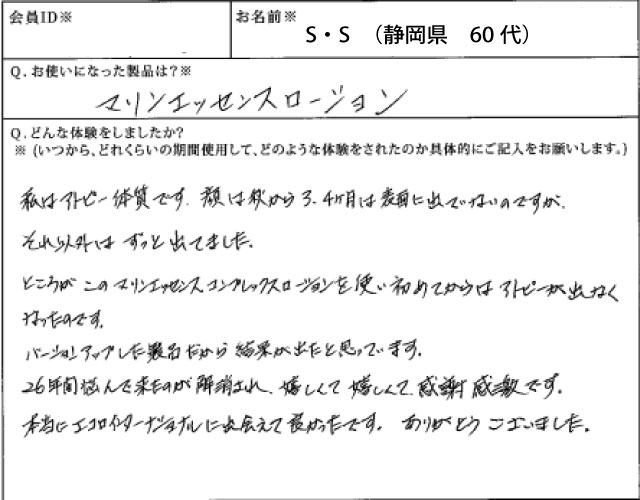 会員ID※
お名前※
S・S (静岡県 60代)
Q. お使いになった製品は?※
マリンエッセンスローション
Q. どんな体験をしましたか?
※ (いつから、どれくらいの期間使用して、どのような体験をされたのか具体的にご記入をお願いします。)
私はアトピー体質です. 顔は秋から3、4ヶ月は表面に出ていないのですが、
それ以外は ずっと出てました。
ところが このマリンエッセンスコンプレックスローションを使い初めてからは アトピーが出なく
なったのです。
バージョンアップした製品だから 結果が出たと思っています。
26年間悩んで来たのが 解消され、嬉しくて 嬉しくて、感謝 感激です。
本当に エコロインターナショナルに出会えて良かったです。 ありがとう ございました。